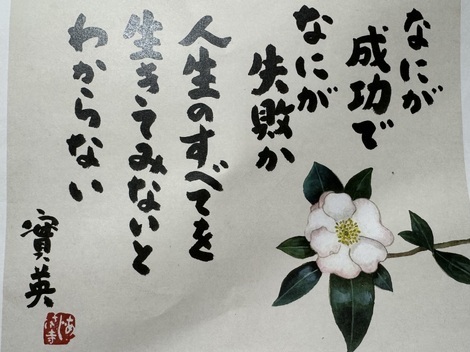 なにが
成功で
なにが
失敗か
人生のすべてを
生きてみないと
わからない
寳英